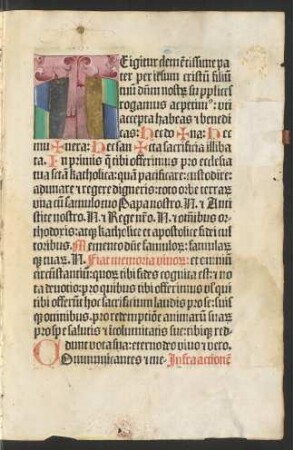 E igitur clemẽtissime pa
ter per iesum cristũ filiũ
tuũ dñm nostrũ supplices
rogamus ac petim⁹: vti
accepta habeas ⁊ benedi
cas: Hec do ✠ na: Hec
mu ✠ nera: Hec san ✠ cta sacrificia illiba
ta. In primis q̃ tibi offerimus pro ecclesia
tua sctã katholica: quã pacificare: custodire:
adunare ⁊ regere digneris: toto orbe terrarũ
vna cũ famulo tuo Papa nostro. N. ⁊ Anti
stite nostro. N. ⁊ Rege nr̃o. N. ⁊ om̃ibus or
thodoxis: atq; katholice et apostolice fidei cul
toribus. Memento dñe famulor̃: famularũ
q; tuarũ. N. Fiat memoria viuor̃: et om̃ium
circũstantiũ: quor̃ tibi fides cognita est: ⁊ no
ta deuotio: pro quibus tibi offerimus vl̃ qui
tibi offerũt hoc sacrificium laudis pro se: suis
q; omnibus. pro redemptiõe animarũ suarũ
pro spe salutis ⁊ incolumitatis sue: tibiq; red
dunt vota sua: eterno deo viuo ⁊ vero.
Cõmunicantes ⁊ me- Infra actionẽ